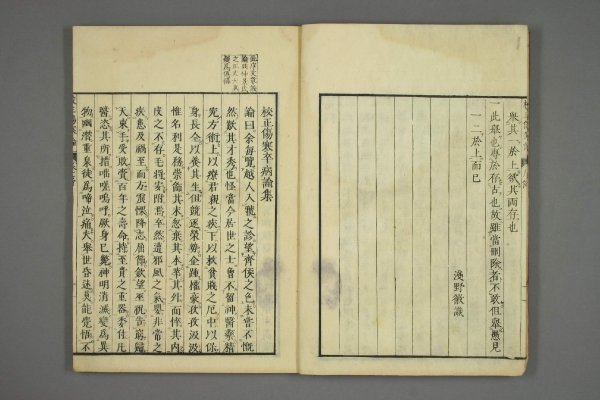 擧其於上欲其兩存也
一此擧也專於存古也故雖當刪除者不敢但擧愚見
一二於上而已
淺野徽識
校正傷寒卒病論集
論曰余每覽越人入虢之診望齊侯之色未嘗不慨
然歎其才秀也怪當今居世之士曾不留神醫藥精
究方術上以療君親之疾下以救貧賤之厄中以保
身長全以養其生但競逐榮勢企踵權豪孜孜汲汲
惟名利是務崇飾其末忽棄其本華其外而悴其內
皮之不存毛將安附焉卒然遭邪風之氣嬰非常之
疾患及禍至而方震慄降志屈節欽望巫祝告窮歸
天束手受敗賫百年之壽命持至貴之重器委付凡
醫恣其所措咄嗟嗚呼厥身已斃神明消滅變爲異
物幽潛重泉徒爲啼泣痛夫舉世昏迷莫能覺悟不